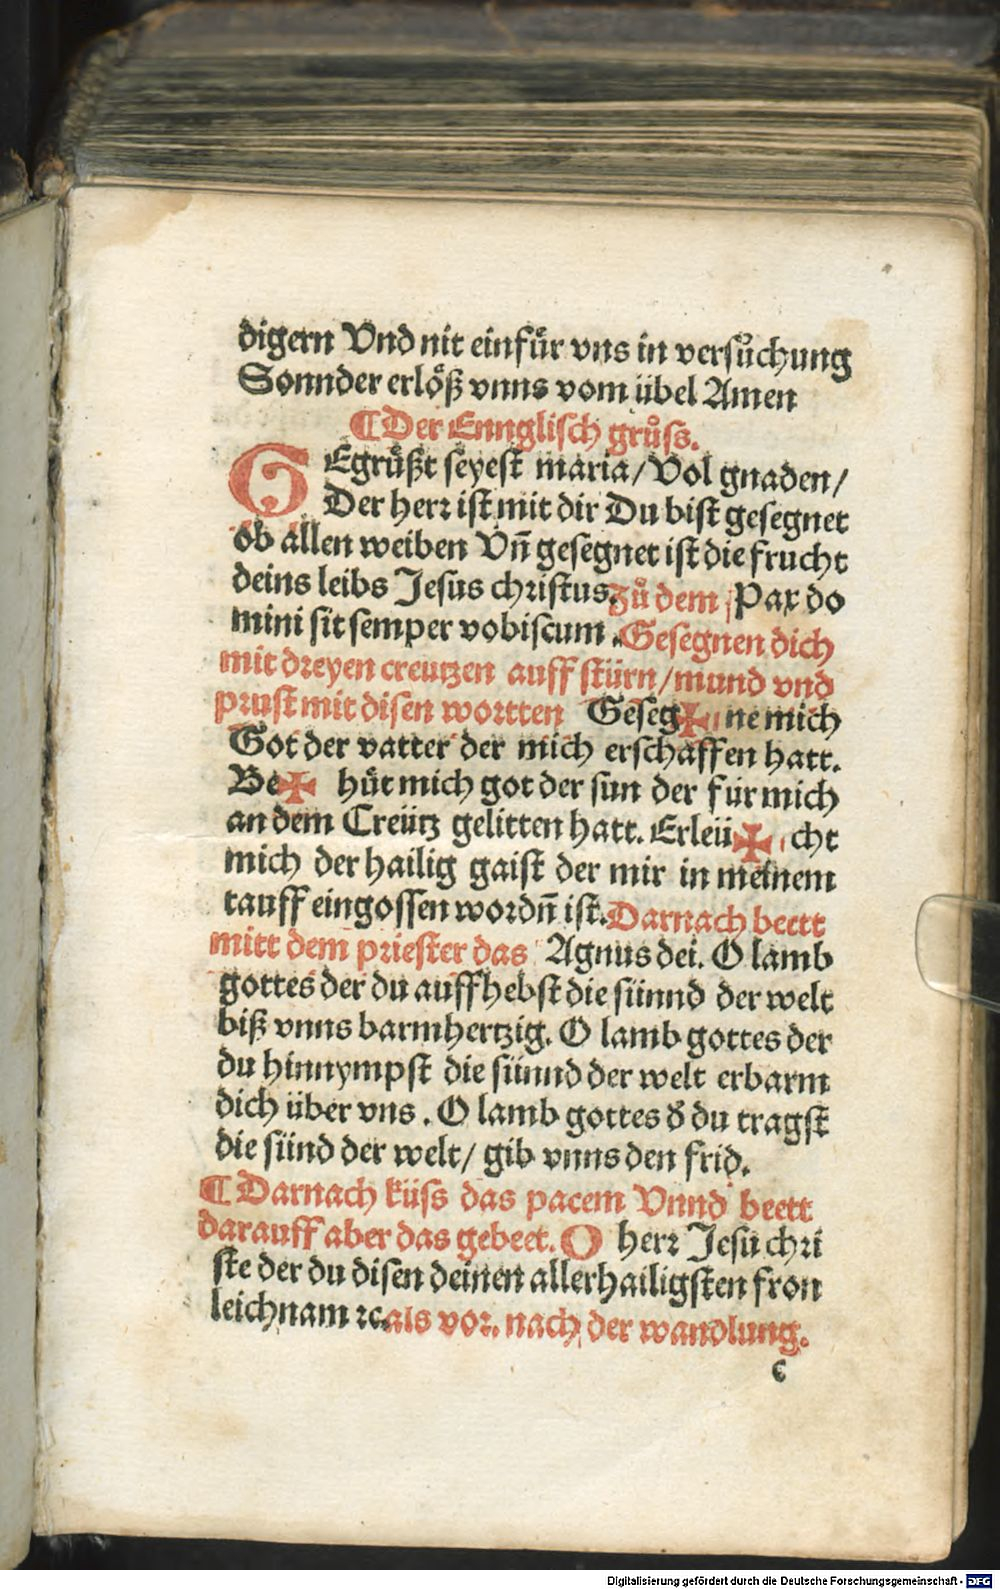 digern Vnd nit einfu̇r vns in versůchung
Sonnder erlöß vnns vom übel Amen
¶ Der Ennglisch grůss.
GEgrüßt seyest maria/ Vol gnaden/
Der herr ist mit dir Du bist gesegnet
ob allen weiben Vn̄ gesegnet ist die frucht
deins leibs Jesus christus. Zů dem Pax do
mini sit semper vobiscum. Gesegnen dich
mit dreyen creutzen auff stürn/ mund vnd
prust mit disen wortten Geseg ✠ ne mich
Got der vatter der mich erschaffen hatt.
Be ✠ hüt mich got der sun der für mich
an dem Creütz gelitten hatt. Erleü ✠ cht
mich der hailig gaist der mir in meinem
tauff eingossen wordn̄ ist. Darnach bectt
mitt dem priester das Agnus dei. O lamb
gottes der du auffhebst die sünnd der welt
biß vnns barmhertzig. O lamb gottes der
du hinnympst die sünnd der welt erbarm
dich über vns. O lamb gottes đ du tragst
die sünd der welt/ gib vnns den frid.
¶ Darnach küss das pacem Vnnd beett
darauff aber das gebeet. O herr Jesu chri
ste der du disen deinen allerhailigsten fron
leichnam ꝛc. als vor. nach der wandlung.
c
Digitalisierung gefördert durch die Deutsche Forschungsgemeinschaft - DFG